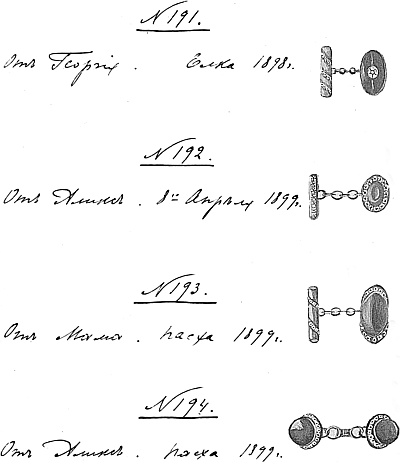 №191.
Отъ Георгія. Елка 1898г.
№192.
Отъ Аликсъ. 8го Апрѣля 1899г.
№193.
Отъ Мама. Пасха 1899г.
№194.
Отъ Аликсъ. Пасха 1899г.